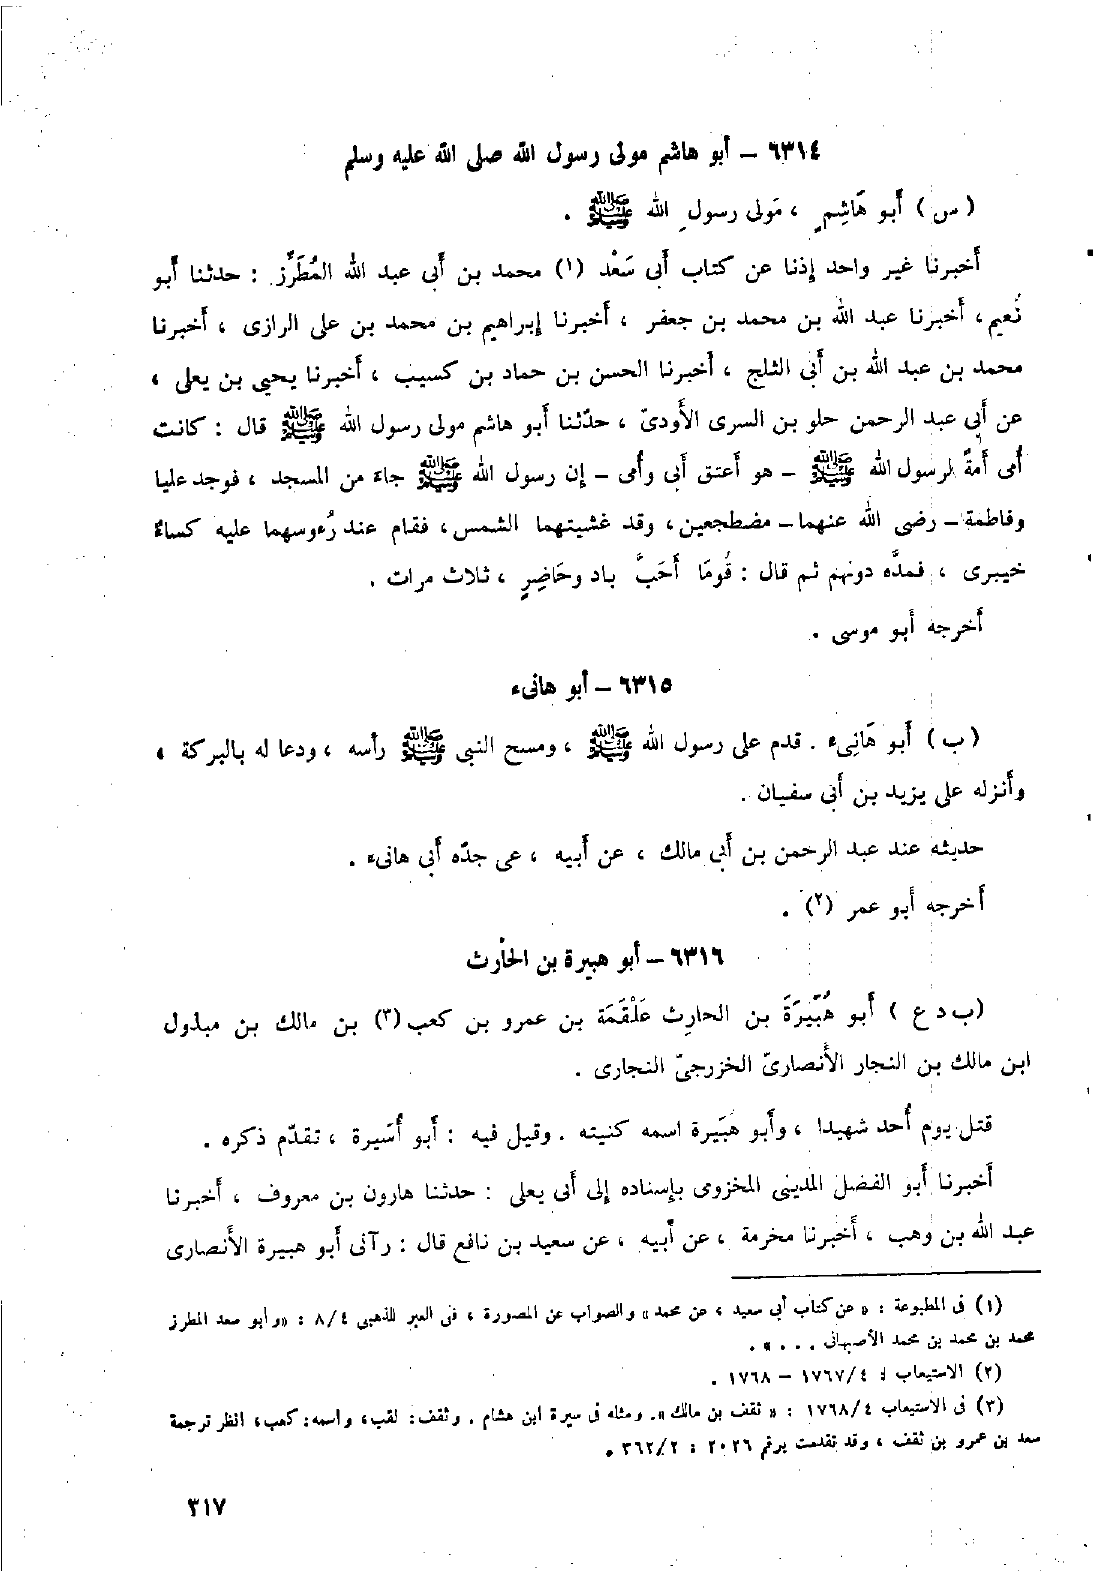 ٦٣١٤ – أبو هاشم مولى رسول الله صلى الله عليه وسلم
( س ) أَبو هَاشِمٍ ، مَولى رسولِ الله ﷺ .
أَخبرنا غير واحد إذنا عن كتاب أَبى سَعْد (١) محمد بن أَبى عبد الله المُطَرَّز : حدثنا أَبو
نُعيم، أَخبرنا عبد الله بن محمد بن جعفر ، أَخبرنا إبراهيم بن محمد بن على الرازى ، أَخبرنا
محمد بن عبد الله بن أَبى الثلج ، أَخبرنا الحسن بن حماد بن كسيب ، أَخبرنا يحيى بن يعلى ،
عن أَبى عبد الرحمن حلو بن السرى الأَودىّ ، حدّثنا أَبو هاشم مولى رسول الله ﷺ قال : كانت
أُمى أَمةً لرسول الله ﷺ – هو أَعتق أَبى وأُمى – إن رسول الله ﷺ جاءَ من المسجد ، فوجد عليا
وفاطمة – رضى الله عنهما – مضطجعين، وقد غشيتهما الشمس، فقام عند رُءوسهما عليه كساءٌ
خيبرى ، فمدَّه دونهم ثم قال : قُومَا أَحَبَّ باد وحَاضِرٍ ، ثلاث مرات .
أَخرجه أَبو موسى .
٦٣١٥ – أبو هانىء
( ب ) أَبو هَانِىء . قدم على رسول الله ﷺ ، ومسح النبى ﷺ رأسه ، ودعا له بالبركة ،
وأَنزله على يزيد بن أَبى سفيان .
حديثه عند عبد الرحمن بن أَبى مالك ، عن أَبيه ، عى جدّه أَبى هانىء .
أَخرجه أَبو عمر (٢) .
٦٣١٦ – أبو هبيرة بن الحارث
(ب د ع ) أَبو هُبَيْرَةَ بن الحارِث عَلْقَمَة بن عمرو بن كعب (٣) بن مالك بن مبذول
ابن مالك بن النجار الأَنصارىّ الخزرجىّ النجارى .
قتل يوم أُحد شهيدا ، وأَبو هبَيرة اسمه كنيته . وقيل فيه : أَبو أُسَيرة ، تقدّم ذكره .
أَخبرنا أَبو الفضل المدينى المخزومى بإسناده إلى أَبى يعلى : حدثنا هارون بن معروف ، أَخبرنا
عبد الله بن وهب ، أَخبرنا مخرمة ، عن أَبيه ، عن سعيد بن نافع قال : رآنى أَبو هبيرة الأَنصارى
(١) فى المطبوعة : « عن كتاب أبى سعيد ، عن محمد » والصواب عن المصورة ، فى العبر للذهبى ٤/ ٨ : «وأبو سعد المطرز
محمد بن محمد بن محمد الأصبهانى . . . » .
(٢) الاستيعاب : ٤/ ١٧٦٧ – ١٧٦٨ .
(٣) فى الاستيعاب ٤/ ١٧٦٨ : « ثقف بن مالك ». ومثله فى سيرة ابن هشام . وثقف: لقب، واسمه: كعب، انظر ترجمة
سعد بن عمرو بن ثقف ، وقد تقدمت برقم ٢٠٢٦ : ٢/ ٣٦٢ .
٣١٧